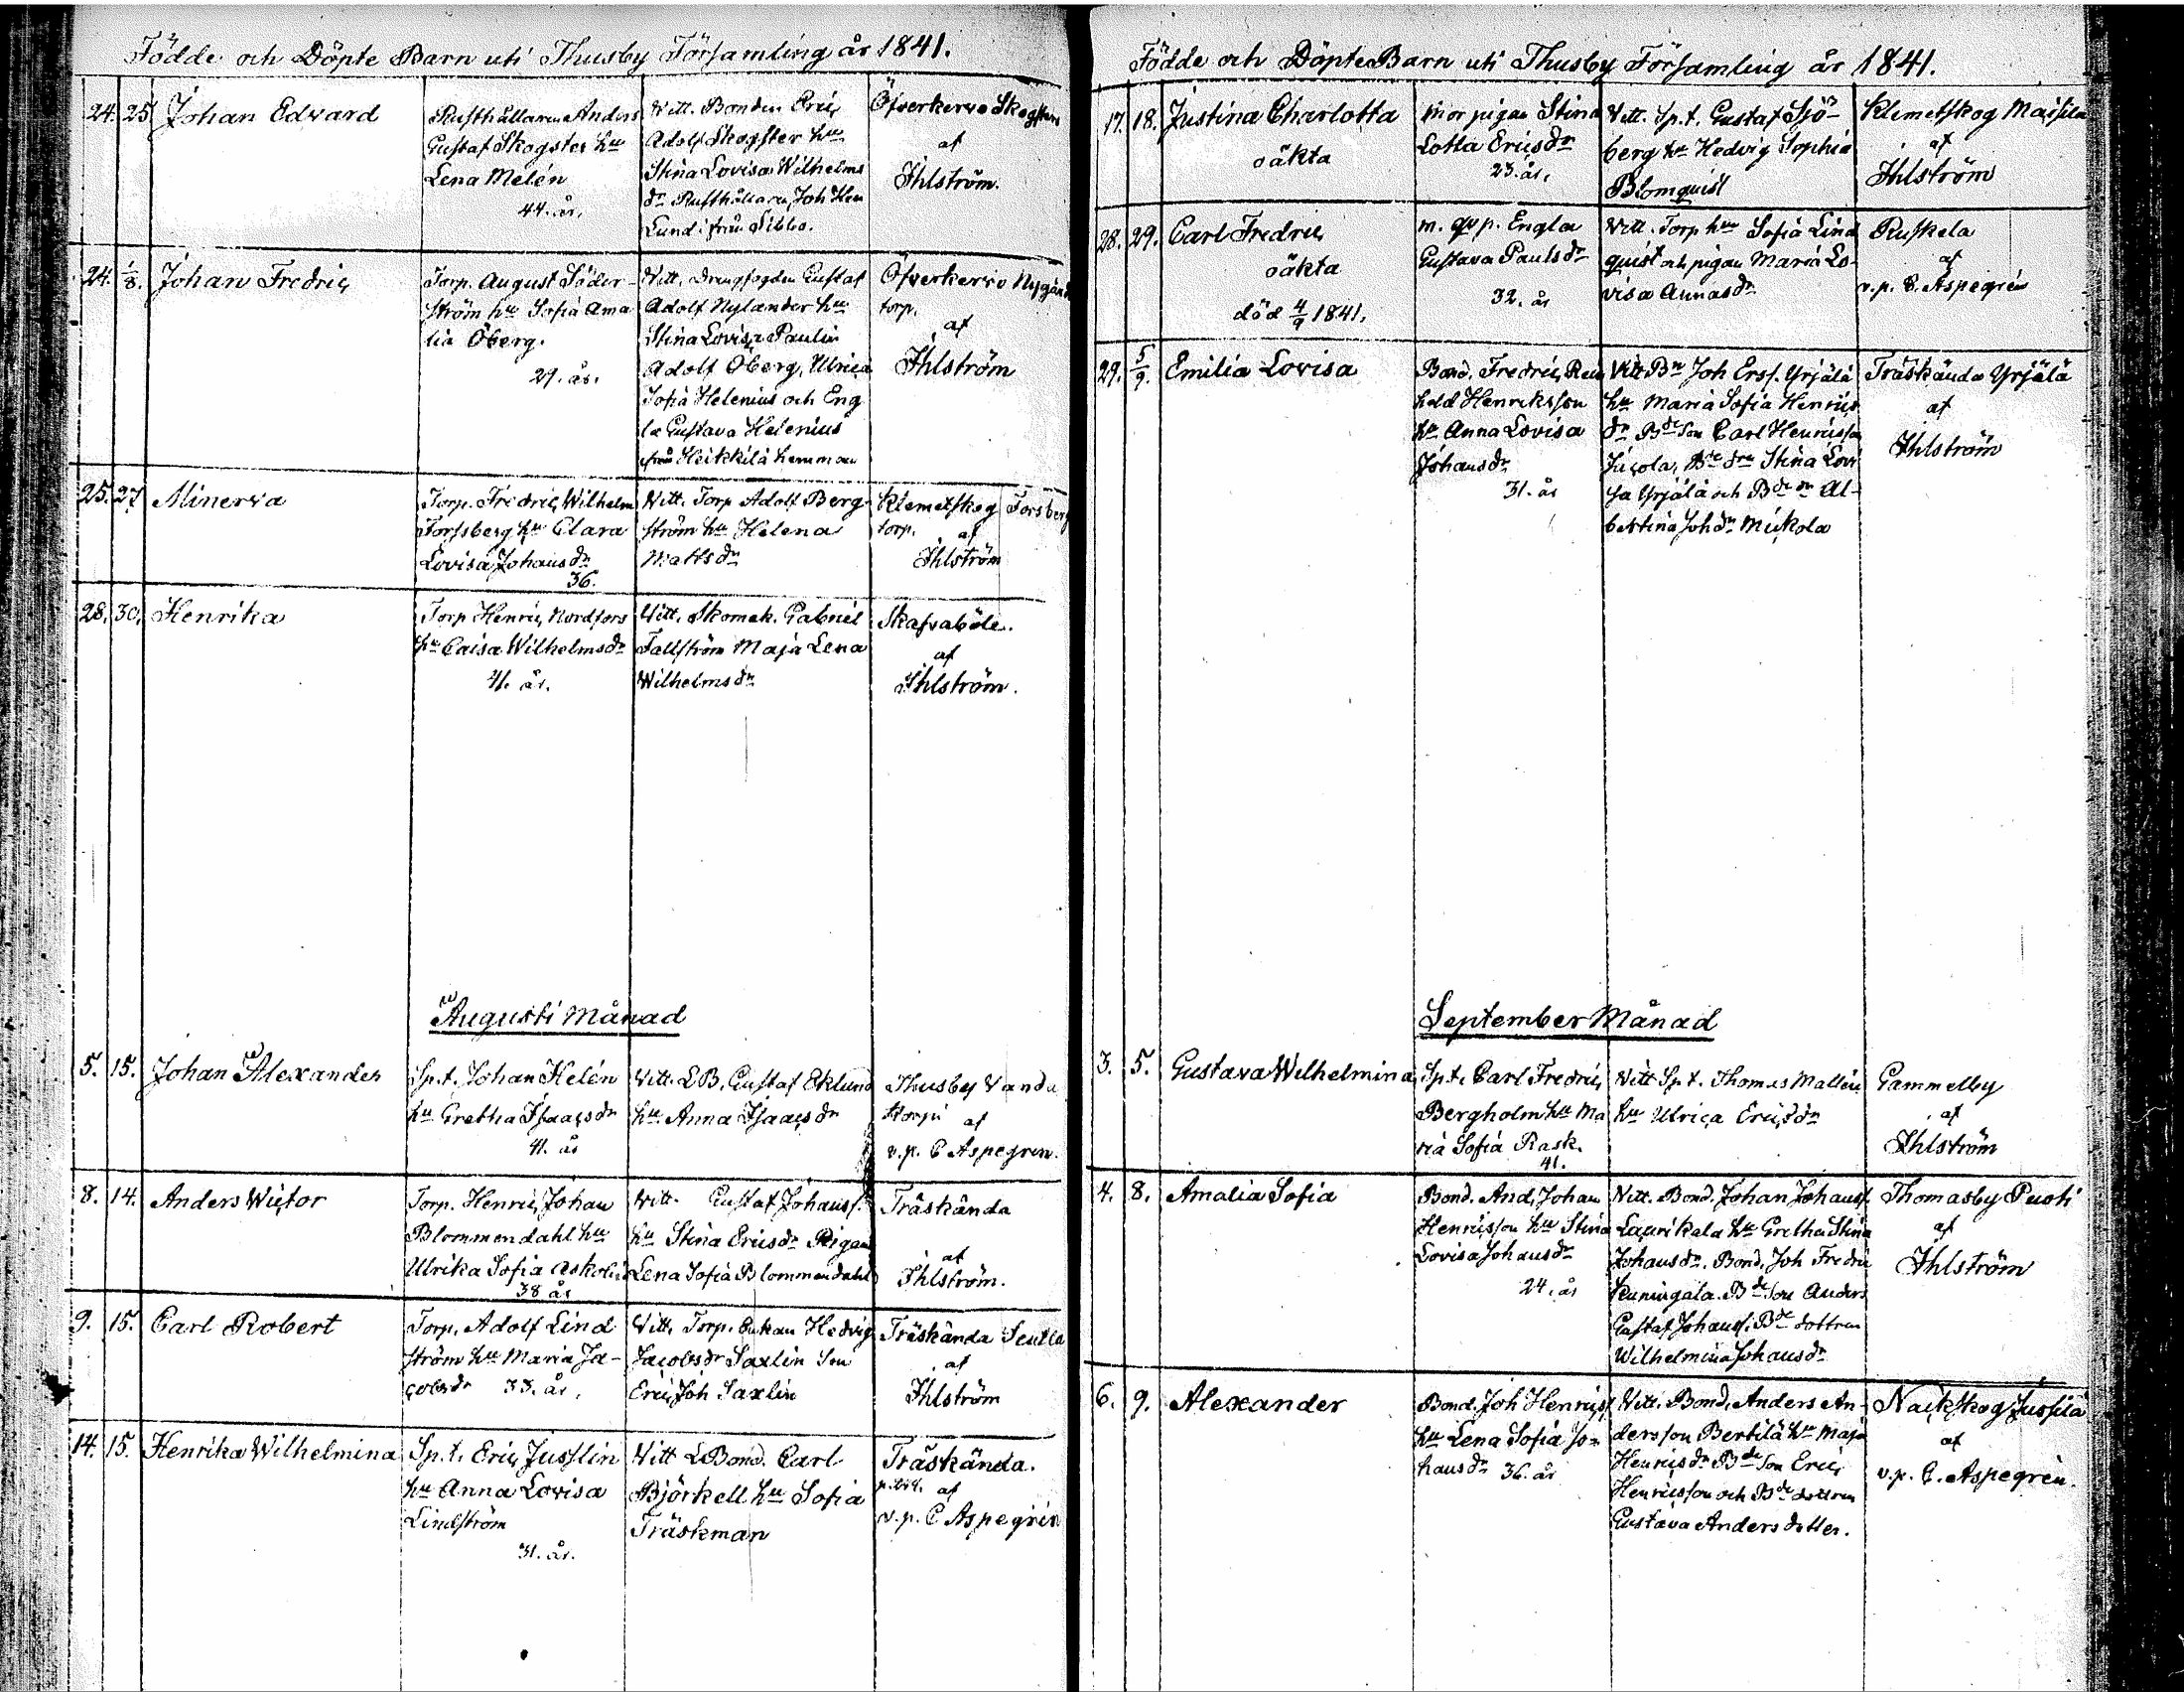 Födde och Döpte Barn uti Thusby Församling år 1841.
24. 25 Johan Edvard
Rusthållaren Anders
Gustaf Skogster hu
Lena Melén
44. år.
Witt. Bonden Eric
Adolf Skogster hu
Stina Lovisa Wilhelms
dr Rusthållaren Joh Hen
Lund från Sibbo.
Öfverkervo Skogster
af
Ihlström.
24. 1/8. Johan Fredric
Torp. August Söder-
ström hu Sofia Ama
lia Öberg.
29. år.
Witt. Drengfogden Gustaf
Adolf Nylander hu
Stina Lovisa Paulin
Adolf Öberg, Ulrica
Sofia Helenius och Eng
la Gustava Helenius
från Heikkilä hemman
Öfverkervo Nygård
torp.
af
Ihlström
25. 27 Minerva
Torp. Fredric Wilhelm
Forssberg hu Clara
Lovisa Johansdr
36.
Witt. Torp Adolf Berg-
ström hu Helena
Mattsdr
Klemetskog Forsberg
torp. af
Ihlström
28. 30. Henrika
Torp Henric Nordfors
hu Caisa Wilhelmsdr
41. år.
Witt. Skomak. Gabriel
Fallström Maja Lena
Wilhelmsdr
Skafvaböle.
af
Ihlström.
Augusti Månad
5. 15. Johan Alexander
Sp.t. Johan Helén
hu Gretha Isaacsdr
41. år
Witt. L.B. Gustaf Eklund
hu Anna Isaacsdr
Thusby Vanda
af
v.p. C Aspegren.
8. 14. Anders Victor
Torp. Henric Johan
Blommendahl hu
Ulrika Sofia Askolin
38 år
Witt. Gustaf Johanss.
hu Stina Ericsdr Pigan
Lena Sofia Blommendahl
Träskända
af
Ihlström.
9. 15. Carl Robert
Torp. Adolf Lind
ström hu Maria Ja-
cobsdr 33. år.
Witt. Torp. Enkan Hedvig
Jacobsdr Saxlin Son
Eric Joh Saxlin
Träskända Seutla
af
Ihlström
14. 15. Henrika Wilhelmina
Sp.t. Eric Jusslin
hu Anna Lovisa
Lindström
31. år.
Witt L Bond. Carl
Björkell hu Sofia
Träskman
Träskända.
af
v.p. C Aspegrén
Födde och Döpte Barn uti Thusby Församling år 1841.
17. 18. Justina Charlotta
oäkta
Mor pigan Stina
Lotta Ericsdr
23. år.
Witt. Sp.t. Gustaf Sjö-
berg hu Hedvig Sophia
Blomquist
Klemetskog Maisila
af
Ihlström
28. 29. Carl Fredric
oäkta
död 4/9 1841.
m. qvp. Engla
Gustava Paulsdr
32. år
Witt. Torp hu Sofia Lind
quist och pigan Maria Lo-
visa Annasdr
Ruskela
af
v.p. C. Aspegrén
29. 5/9. Emilia Lovisa
Bond. Fredric Rein
hold Henriksson
hu Anna Lovisa
Johansdr
31. år
Witt Bn Joh Erss. Yrjälä
hu Maria Sofia Henrics
dr Bde Son Carl Henricsson
Jucola, Bde drn Stina Lovi
sa Yrjälä och Bde dr Al-
bertina Johdr Mickola
Träskända Yrjälä
af
Ihlström
September Månad
3. 5. Gustava Wilhelmina
Sp.t. Carl Fredric
Bergholm hu Ma
ria Sofia Rask.
41.
Witt Sp.t. Thomas Mallén
hu Ulrica Ericsdr
Gammelby
af
Ihlström
4. 8. Amalia Sofia
Bond. And. Johan
Henricsson hu Stina
Lovisa Johansdr
24. år
Witt. Bond. Johan Johanss.
Laurikala hu Gretha Stina
Johansdr. Bond. Joh Fredric
Kuningala. Bde Son Anders
Gustaf Johanss. Bde dottren
Wilhelmina Johansdr
Thomasby Puoti
af
Ihlström
6. 9. Alexander
Bond. Joh Henricss
hu Lena Sofia Jo-
hansdr 36. år
Witt. Bond. Anders An-
dersson Bertilä hu Maja
Henricsdr Bde Son Eric
Henricsson och Bde dottren
Gustava Andersdotter.
Nackskog Jussila
af
v.p. C. Aspegrén.